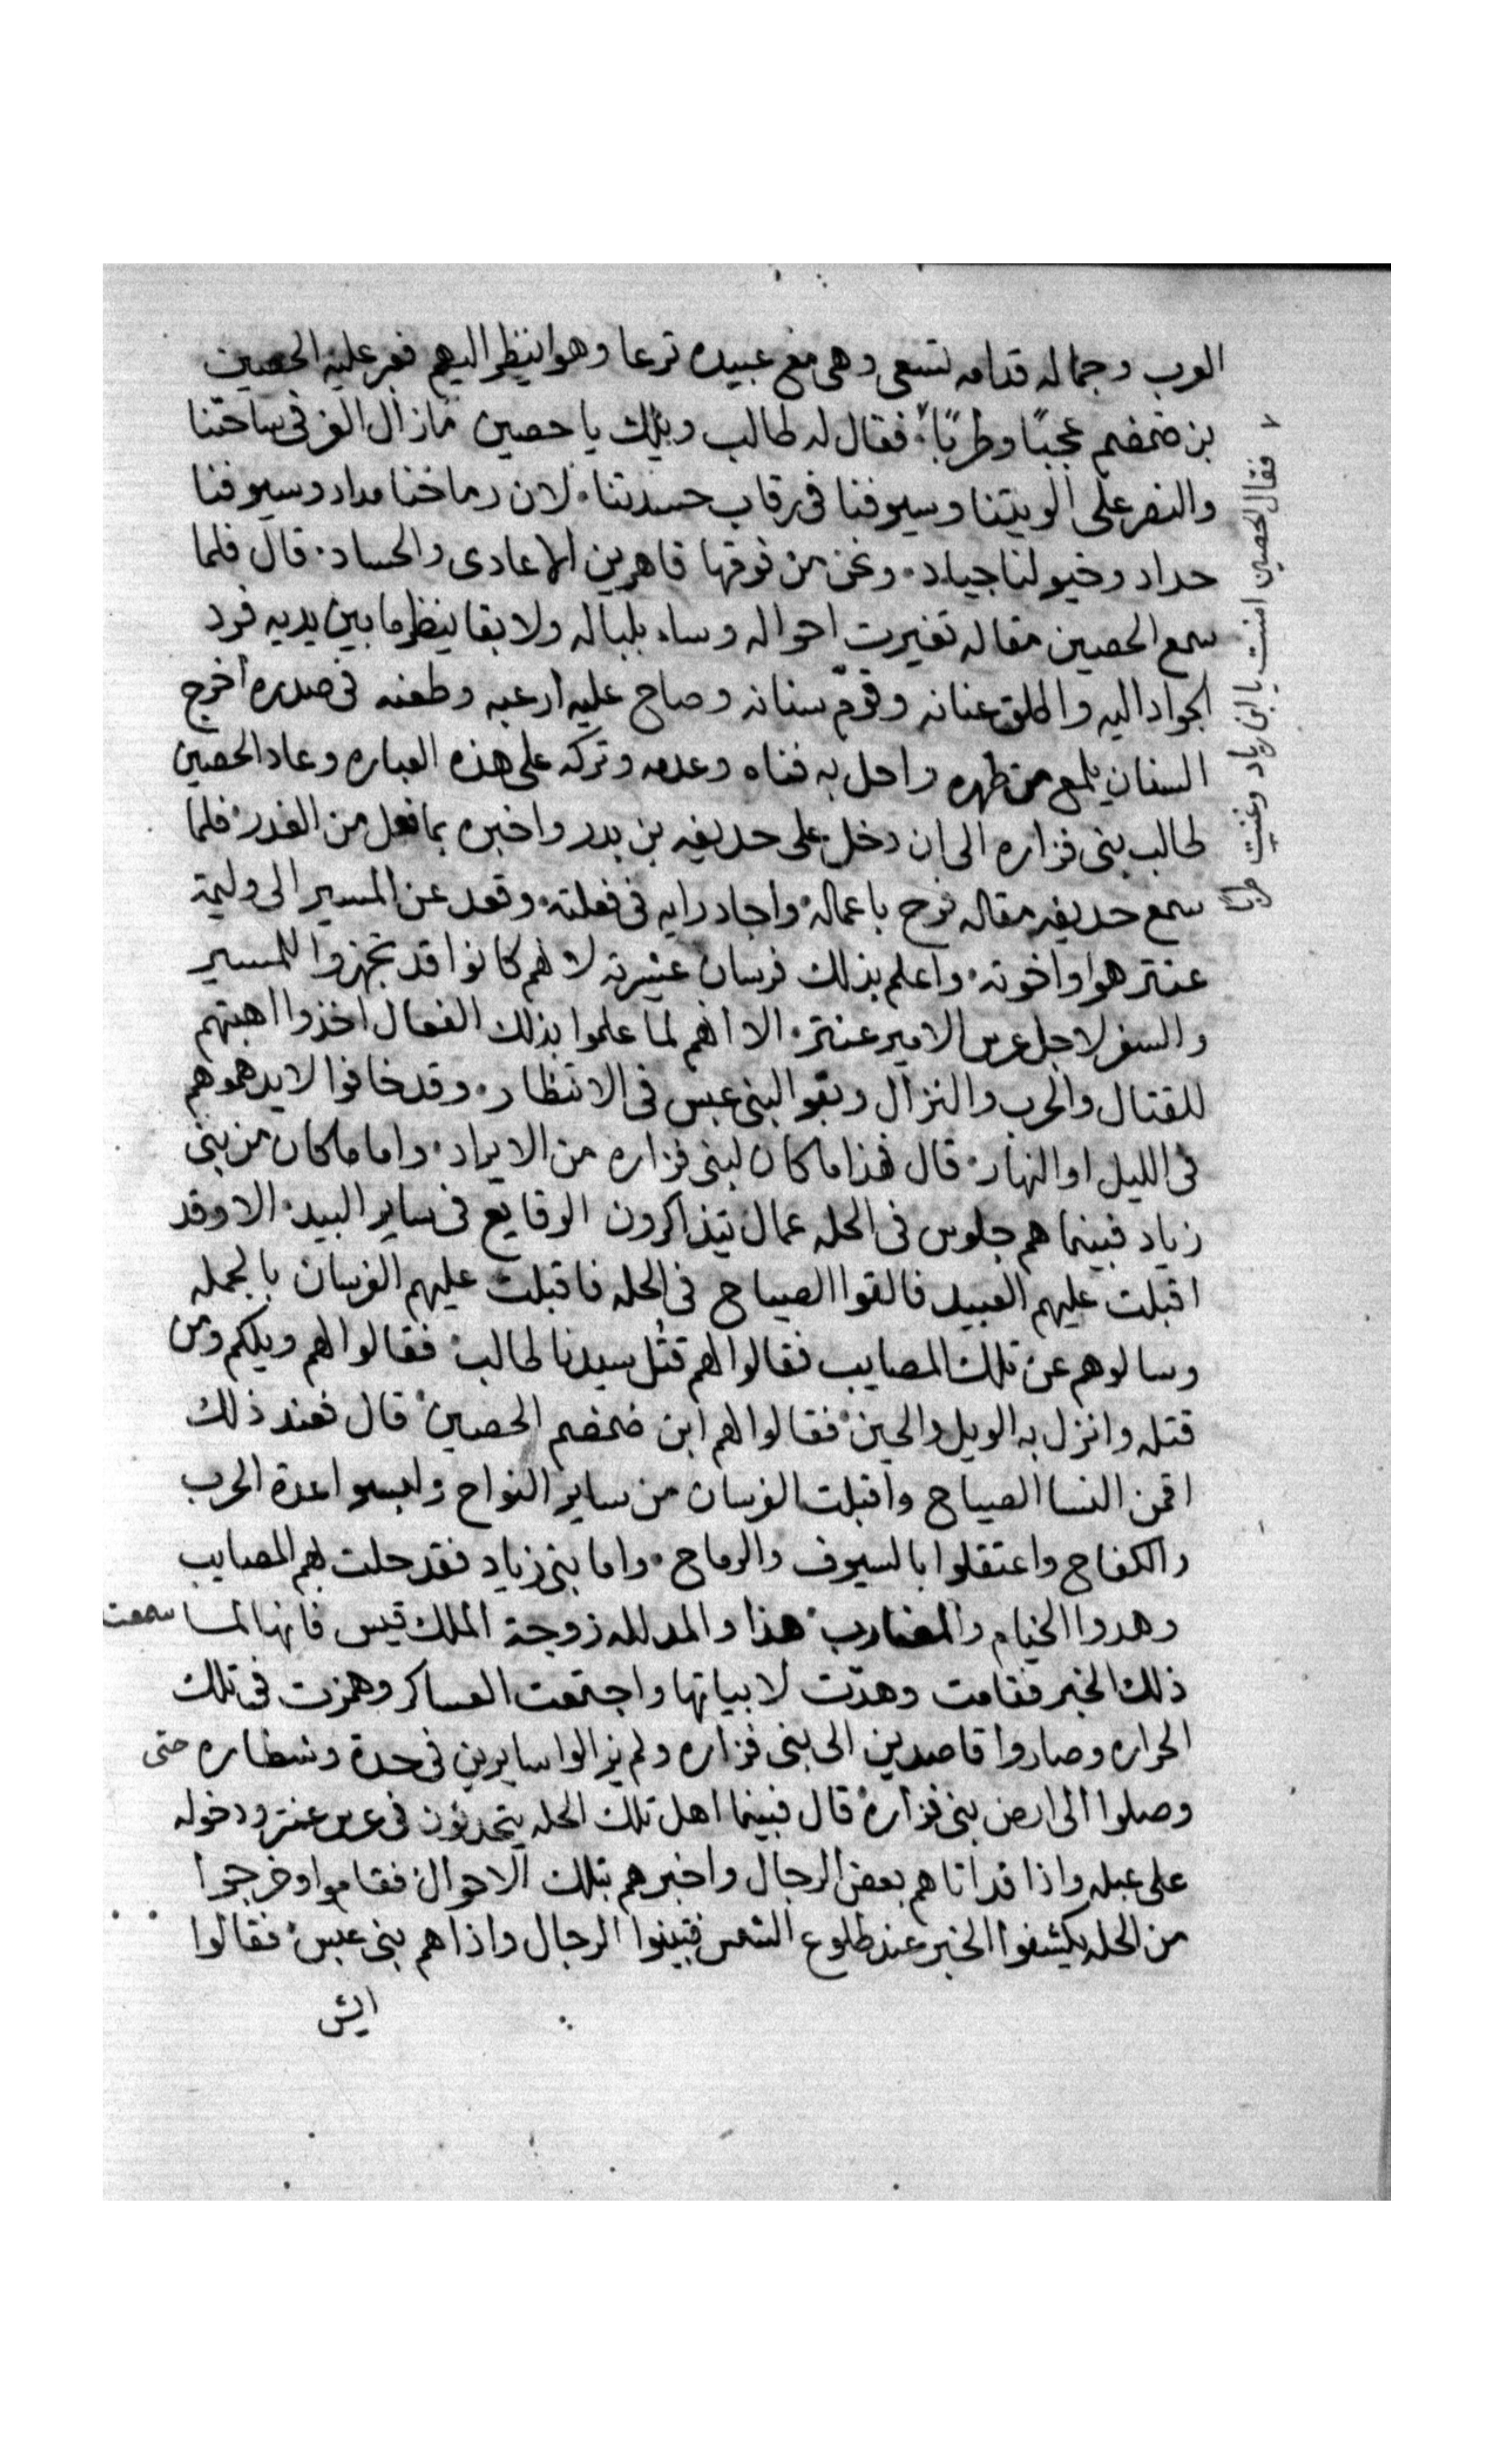 العرب وجماله قدامه تسعى وهى مع عبيده ترعا وهوا ينظر اليهم فعبر عليه الحصين
بن ضمضم عجبًا وطربًا فقال له طالب ويلك يا حصين مازال العز فى ساحتنا
والنصر على الويتنا وسيوفنا فى رقاب حسدتنا لان رماحنا مداد وسيوفنا
حداد وخيولنا جياد ونحن من فوقها قاهرين الاعادى والحساد قال فلما
سمع الحصين مقاله تغيرت احواله وساء بلباله ولا بقا ينظر ما بين يديه فرد
الجواد اليه واطلق عنانه وقوّم سنانه وصاح عليه ارعبه وطعنه فى صدره اخرج
السنان يلمع من ظهره واحل به فناه وعدمه وتركه على هذه العباره وعاد الحصين
طالب بنى فزاره الى ان دخل على حديفه بن بدر واخبره بما فعل من الغدر فلما
سمع حديفه مقاله فرح باعماله واجاد رايه فى فعلته وقعد عن المسير الى وليمة
عنتر هوا واخوته واعلم بذلك فرسان عشيرته لانهم كانوا قد تجهزوا للمسير
والسفر لاجل عرس الامير عنتر الا انهم لما علموا بذلك الفعال اخذوا اهبتهم
للقتال والحرب والنزال وبقوا لبنى عبس فى الانتظار وقد خافوا لا يدهموهم
فى الليل او النهار قال هذا ما كان لبنى فزاره من الايراد واما ما كان من بنى
زياد فبينما هم جلوس فى الحله عمال يتذاكرون الوقايع فى ساير البيد الا وقد
اقبلت عليهم العبيد فالقوا الصياح فى الحله فاقبلت عليهم الفرسان بالجمله
وسالوهم عن تلك المصايب فقالوا لهم قتل سيدنا طالب فقالوا لهم ويلكم ومن
قتله وانزل به الويل والحين فقالوا لهم ابن ضمضم الحصين قال فعند ذلك
اقمن النسا الصياح واقبلت الفرسان من ساير النواح ولبسوا عدة الحرب
والكفاح واعتقلوا بالسيوف والرماح واما بنى زياد فقد حلت بهم المصايب
وهدوا الخيام والمضارب هذا والمدلله زوجة الملك قيس فانها لما سمعت
ذلك الخبر فقامت وهدّت لابياتها واجتمعت العساكر وهمزت فى تلك
الحراره وصاروا قاصدين الى بنى فزاره ولم يزالوا سايرين فى حدة وشطاره حتى
وصلوا الى ارض بنى فزارة قال فبينما اهل تلك الحله يتحدثون فى عرس عنتر ودخوله
على عبله واذا قد اتاهم بعض الرجال واخبرهم بتلك الاحوال فقاموا وخرجوا
من الحله يكشفوا الخبر عند طلوع الشمس فتبينوا الرجال واذا هم بنى عبس فقالوا
ايش
فقال الحصين امنت يا ابن زياد وغنيت